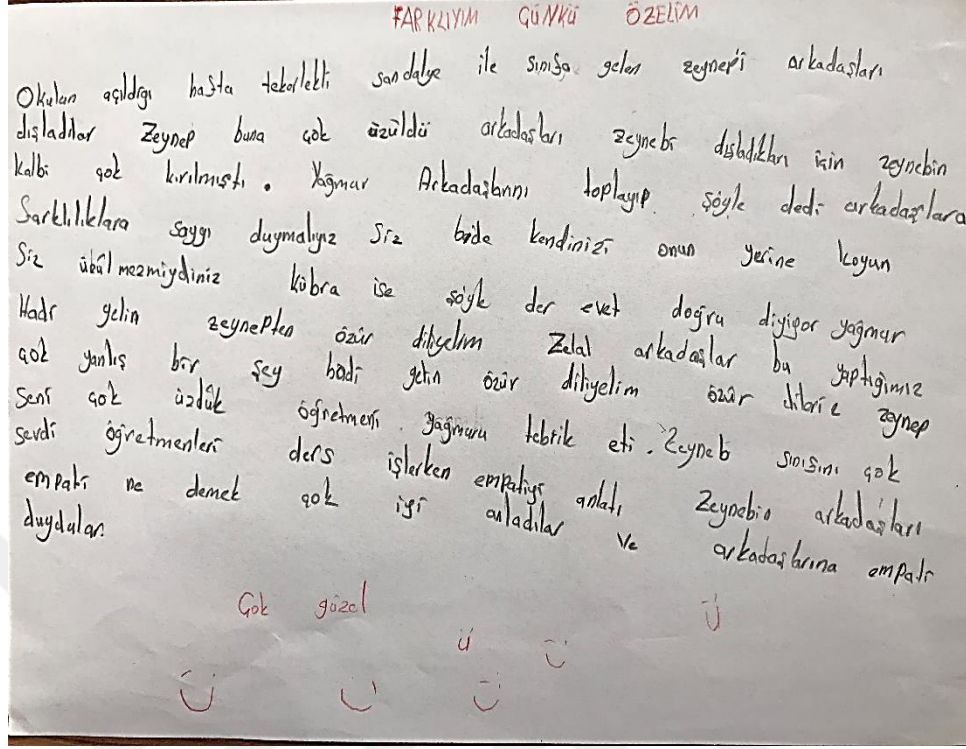 FARKLIYIM GÜNKÜ ÖZELİM
Okulun açıldığı hafta tekerlekli sandalye ile sınıfa gelen zeynep'i arkadaşları
dışladılar Zeynep buna çok üzüldü arkadaşları zeynebi dışladıkları için zeynebin
kalbi çok kırılmıştı. Yağmur Arkadaşlarını toplayıp şöyle dedi arkadaşlara
Sarklılıklara saygı duymalıyız Siz bide kendinizi onun yerine koyun
Siz mezmiydiniz kübra ise şöyle der evet doğru diyiyor yağmur
Hadi gelin zeynepten özür diliyelim Zelal arkadaşlar bu yaptığımız
çok yanlış bir şey hadi gelin özür diliyelim özür dileriz zeynep
Seni çok üzdük öğretmeni yağmuru tebrik eti. Zeyneb sınısını çok
sevdi öğretmenleri ders işlerken empatiyi anlatı Zeynebin arkadaşları
empati ne demek çok iyi anladılar ve arkadaşlarına empati
duydular.
Çok güzel